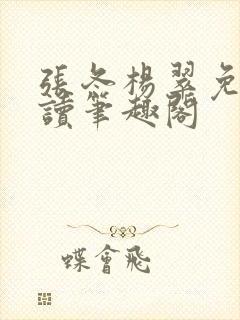 張冬楊翠免
讀筆趣閣
蝶會飛